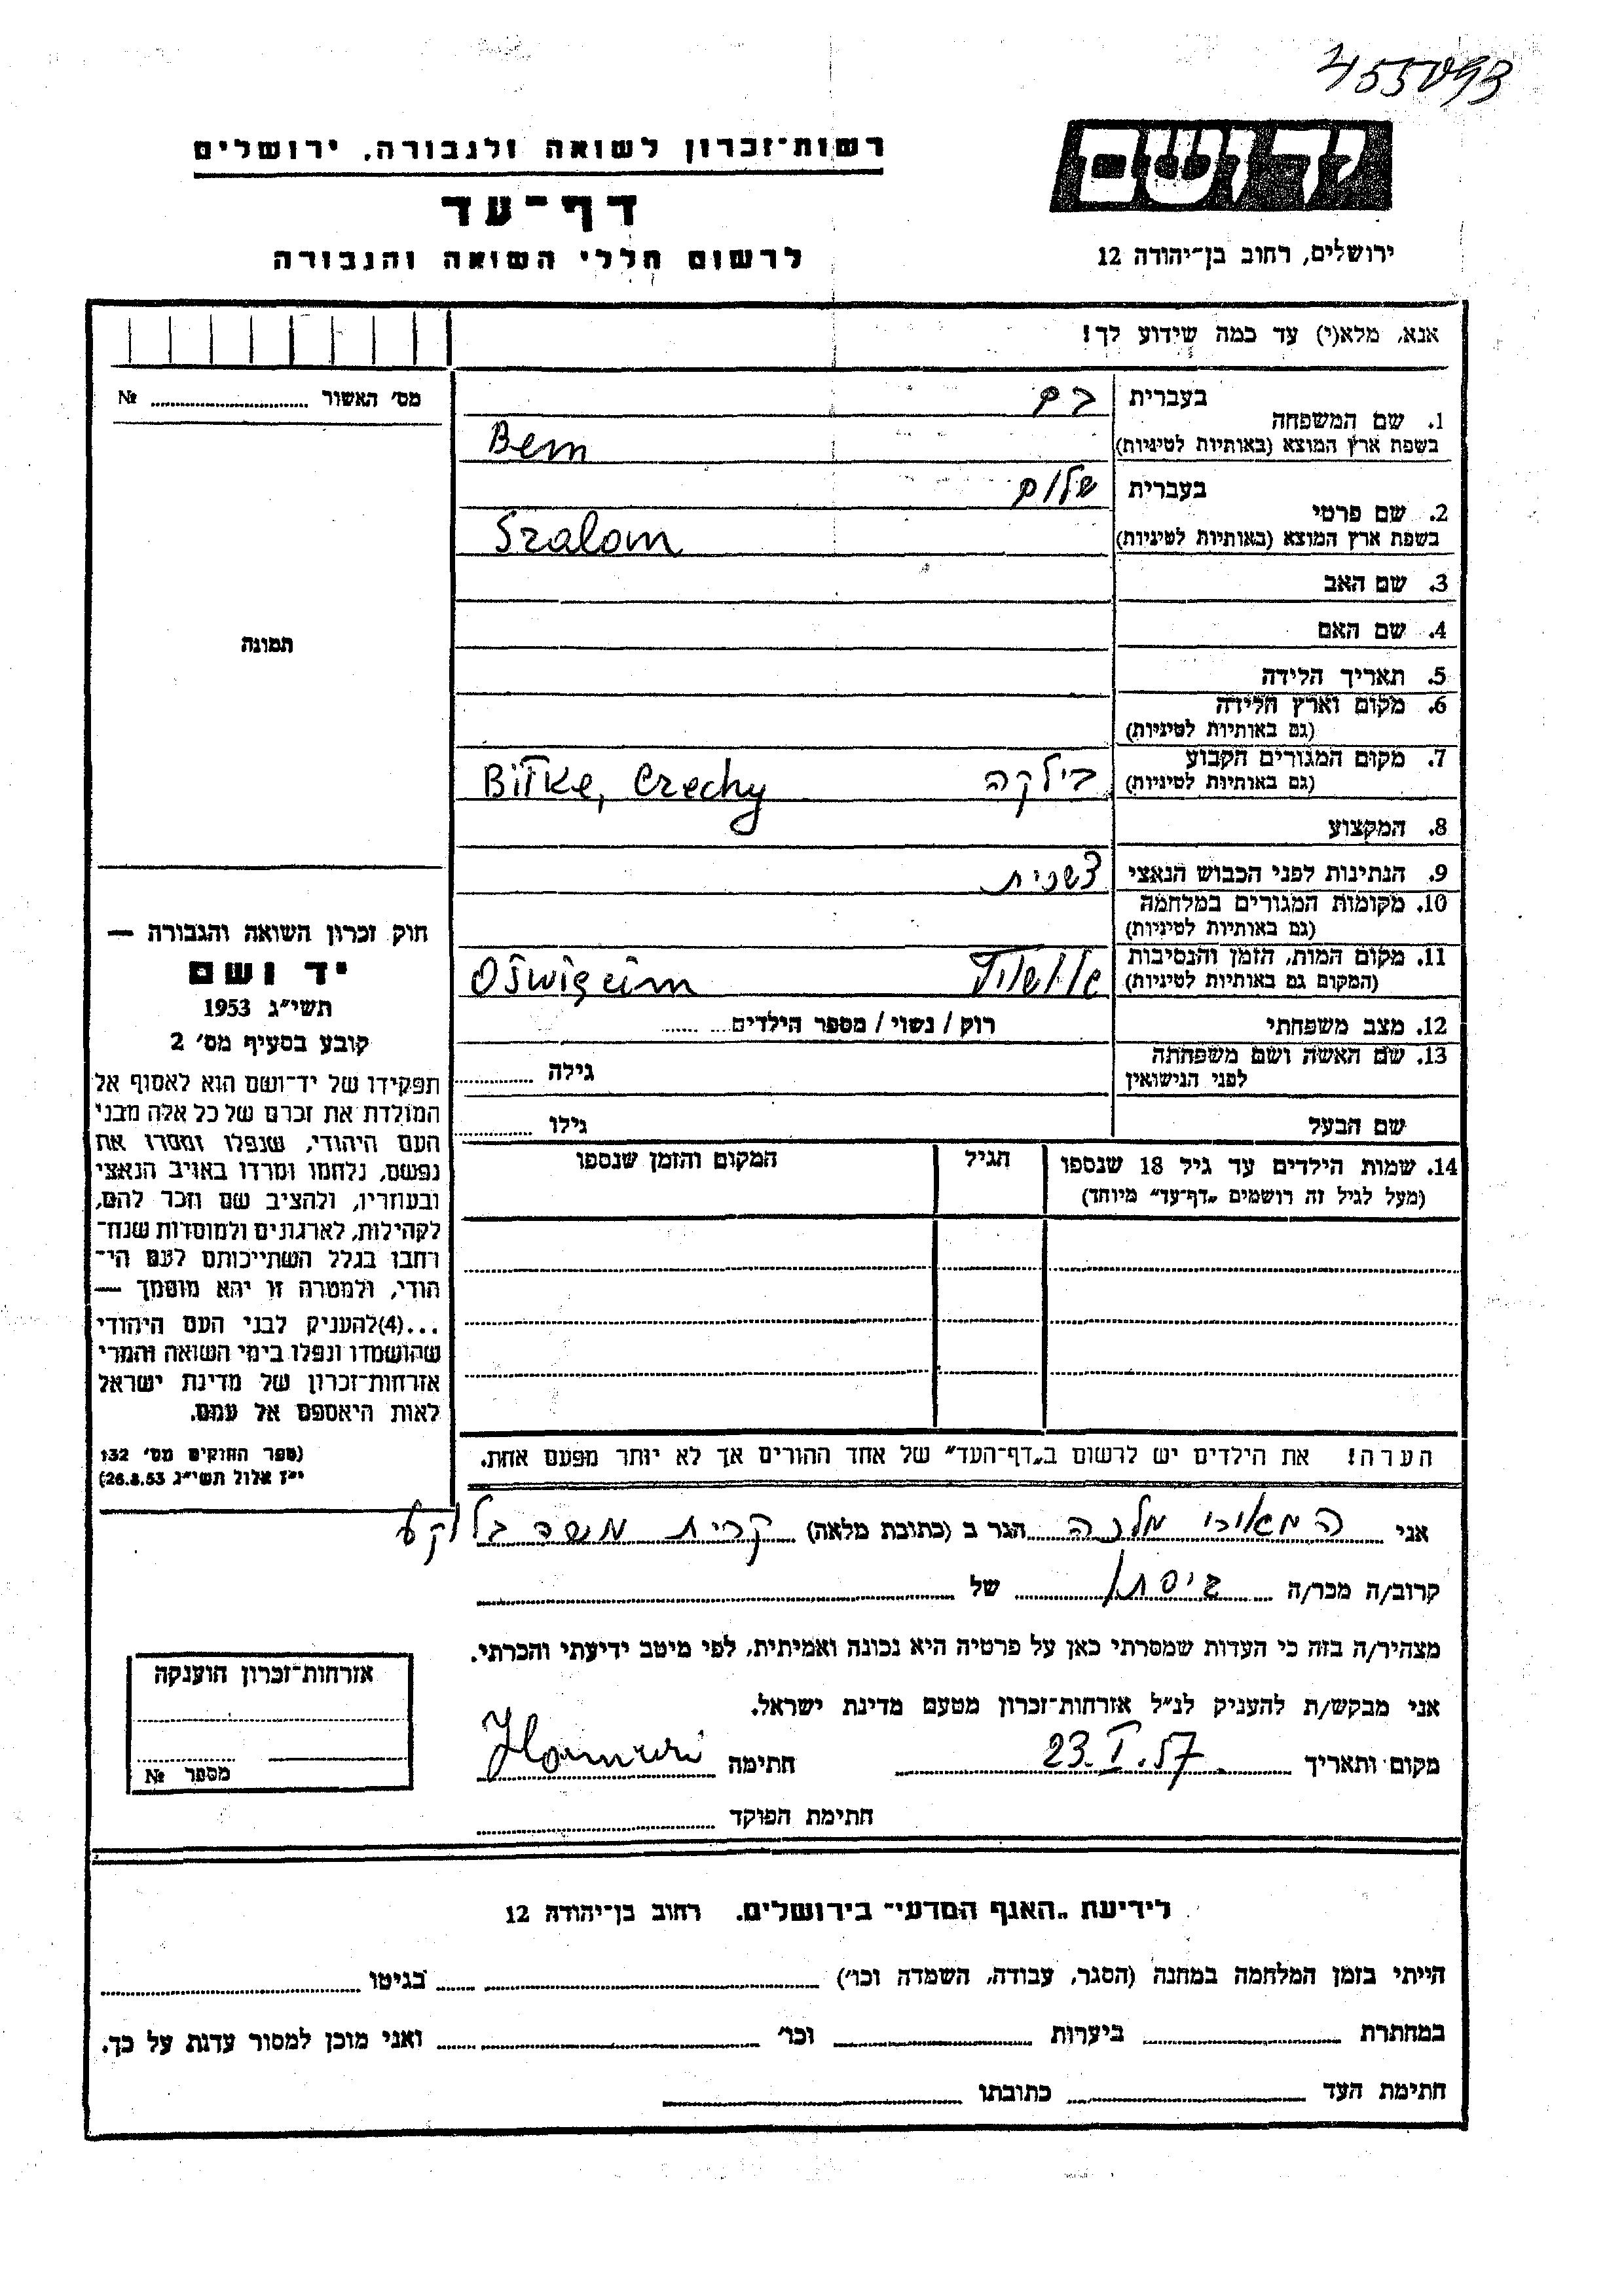 455093
רשות־זכרון לשואה ולגבורה, ירושלים
דף־עד
לרשום חללי השואה והגבורה
יד ושם
ירושלים, רחוב בן־יהודה 12
אנא, מלא(י) עד כמה שידוע לך!
מס׳ האשור № 
1. שם המשפחה
בעברית בם
בשפת ארץ המוצא (באותיות לטיניות) Bem
2. שם פרטי
בעברית שלום
בשפת ארץ המוצא (באותיות לטיניות) Szalom
3. שם האב
4. שם האם
5. תאריך הלידה
6. מקום וארץ הלידה
(גם באותיות לטיניות)
7. מקום המגורים הקבוע
(גם באותיות לטיניות) בילקה Bilke, Czechy
8. המקצוע
9. הנתינות לפני הכבוש הנאצי צ׳כית
10. מקומות המגורים במלחמה
(גם באותיות לטיניות)
11. מקום המות, הזמן והנסיבות
(המקום גם באותיות לטיניות) Oświęcim
12. מצב משפחתי רוק / נשוי / מספר הילדים
13. שם האשה ושם משפחתה
לפני הנישואין גילה
שם הבעל גילו
14. שמות הילדים עד גיל 18 שנספו הגיל המקום והזמן שנספו
(מעל לגיל זה רושמים „דף־עד״ מיוחד)
הערה! את הילדים יש לרשום ב„דף־העד״ של אחד ההורים אך לא יותר מפעם אחת.
תמונה
חוק זכרון השואה והגבורה —
יד ושם
תשי״ג 1953
קובע בסעיף מס׳ 2
תפקידו של יד־ושם הוא לאסוף אל
המולדת את זכרם של כל אלה מבני
העם היהודי, שנפלו ומסרו את
נפשם, נלחמו ומרדו באויב הנאצי
ובעוזריו, ולהציב שם וזכר להם,
לקהילות, לארגונים ולמוסדות שנח־
רחבו בגלל השתייכותם לעם הי־
הודי, ולמטרה זו יהא מוסמך —
...(4)להעניק לבני העם היהודי
שהושמדו ונפלו בימי השואה והמרי
אזרחות־זכרון של מדינת ישראל
לאות היאספם אל עמם.
(ספר החוקים מס׳ 132
י״ז אלול תשי״ג 26.8.53)
אני המאירי מלכה הגר ב (כתובת מלאה) קרית
קרוב/ה מכר/ה גיסתו של
מצהיר/ה בזה כי העדות שמסרתי כאן על פרטיה היא נכונה ואמיתית, לפי מיטב ידיעתי והכרתי.
אני מבקש/ת להעניק לנ״ל אזרחות־זכרון מטעם מדינת ישראל.
מקום ותאריך 23.I.57 חתימה
חתימת הפוקד
אזרחות־זכרון הוענקה
מספר №
לידיעת „האגף המדעי״ בירושלים. רחוב בן־יהודה 12
הייתי בזמן המלחמה במחנה (הסגר, עבודה, השמדה וכו׳) בגיטו
במחתרת ביערות וכו׳ ואני מוכן למסור עדות על כך.
חתימת העד כתובתו